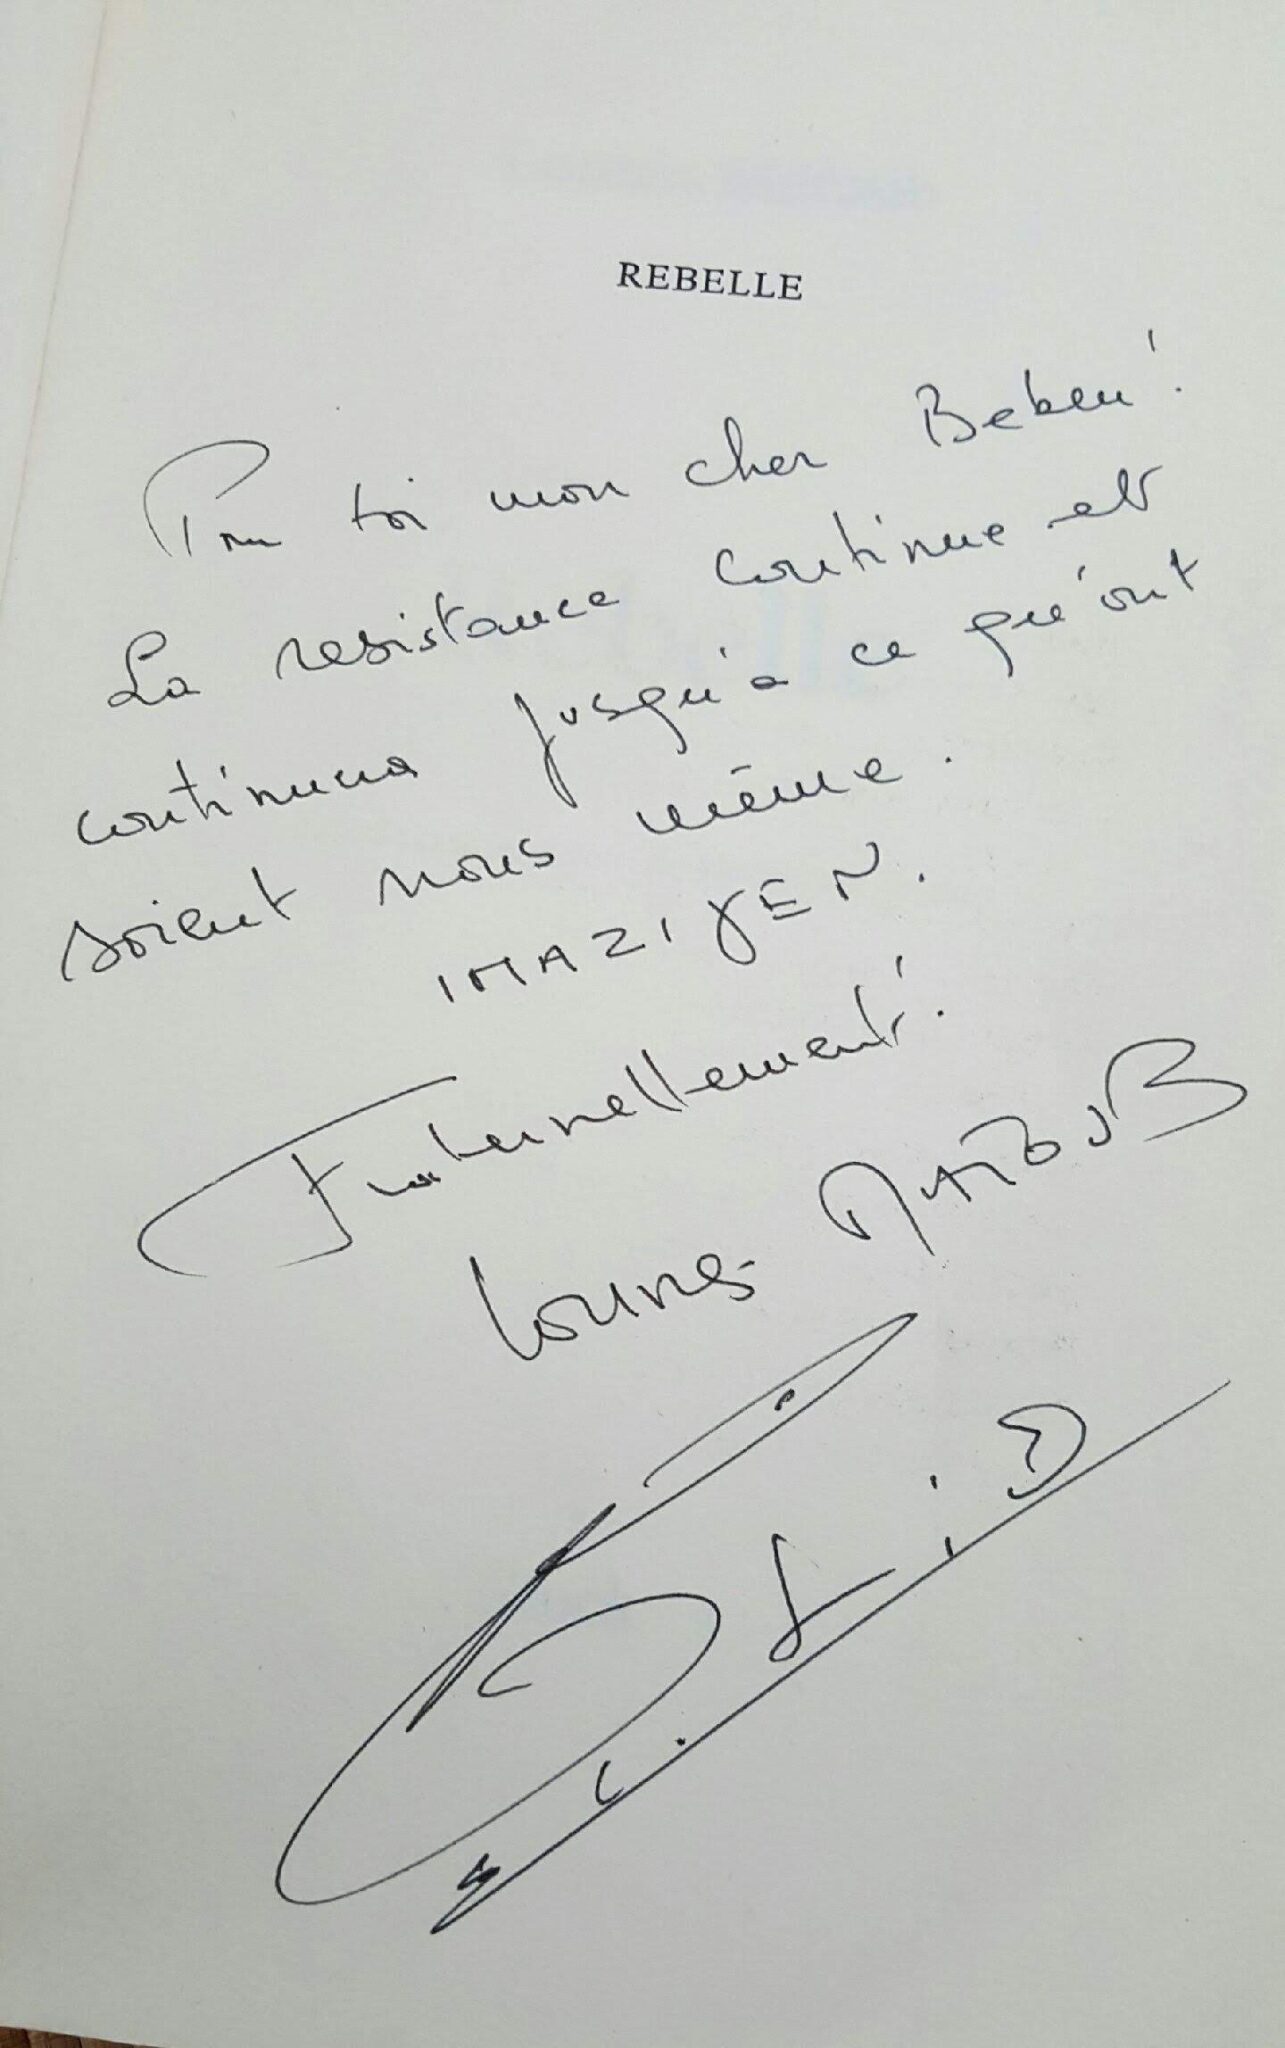 REBELLE
Pour toi mon cher Bebeu !
La resistance continue et
continuera jusqu'à ce qu'ont
soient nous même .
IMAZIƔEN .
Fraternellement !
Lounes MATOUB